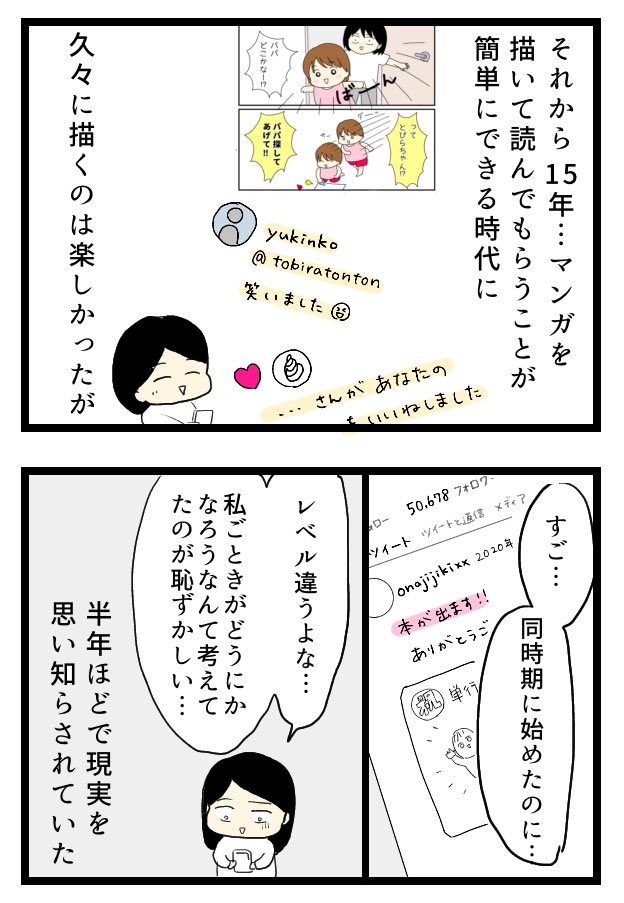 それから15年…マンガを
描いて読んでもらうことが
簡単にできる時代に
パパ
どこかなー!?
ばーん
って
とびらちゃん!?
パパ探して
あげて!!
yukinko
@tobiratonton
笑いました
...さんがあなたの
をいいねしました
久々に描くのは楽しかったが
すご…
同時期に始めたのに…
50,678 フォロワー
ツイート ツイートと返信 メディア
onajijikixx 2020年
本が出ます!!
ありがとうご
単行
レベル違うよな…
私ごときがどうにか
なろうなんて考えて
たのが恥ずかしい…
半年ほどで現実を
思い知らされていた